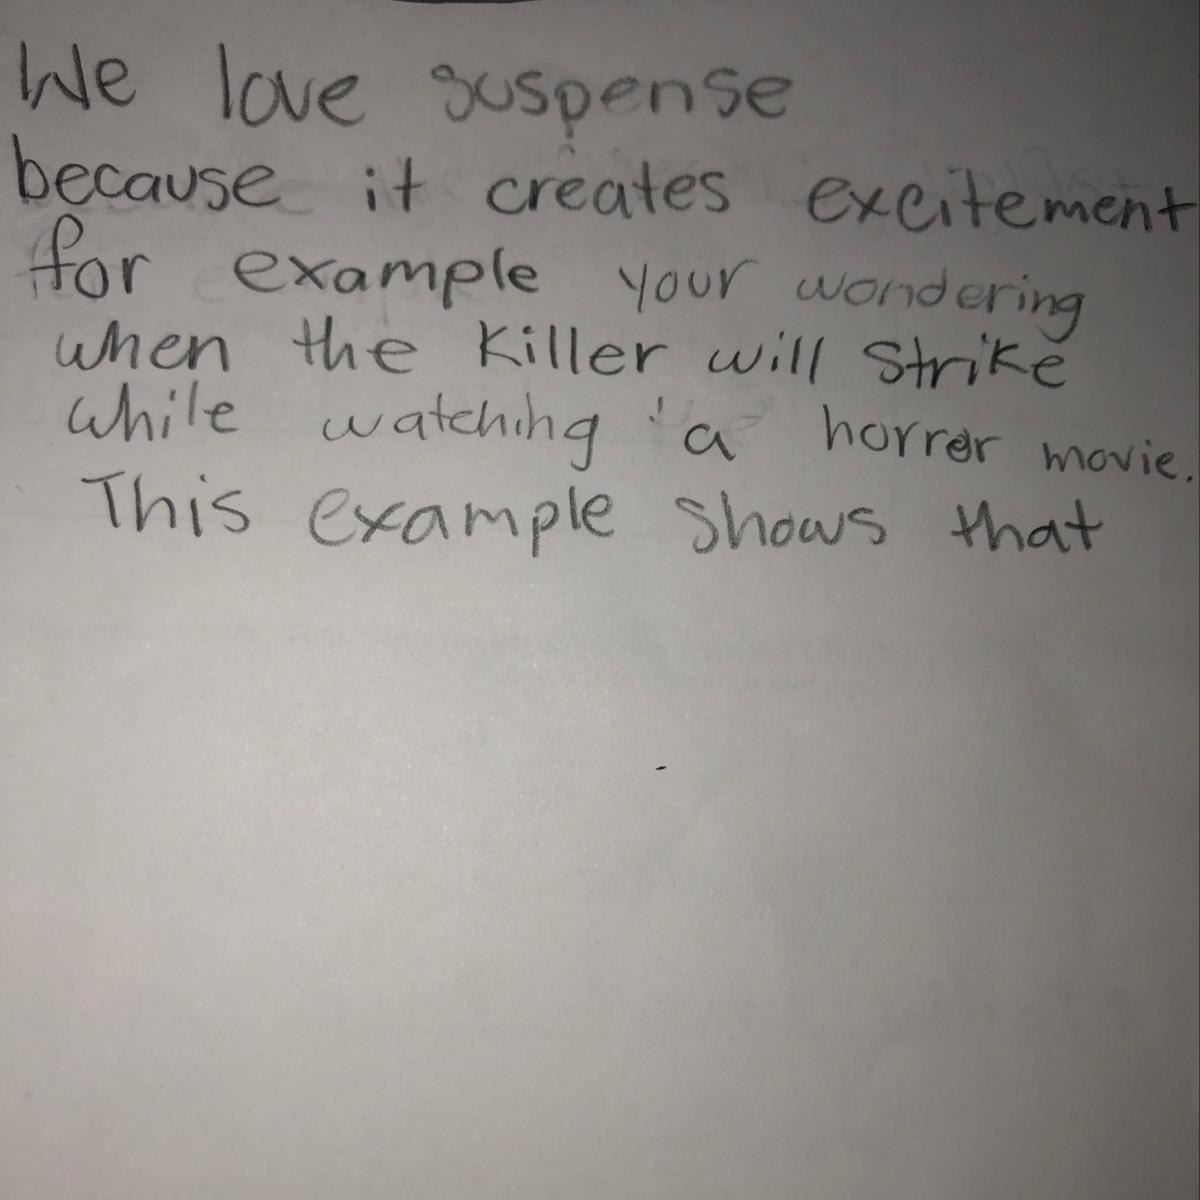 We love suspense
because it creates excitement
for example your wondering
when the killer will strike
while watching a horror movie.
This example shows that